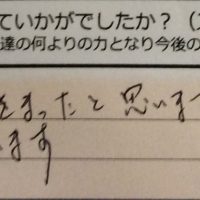 ていかがでしたか？（
達の何よりの力となり今後の
まったと思います
います